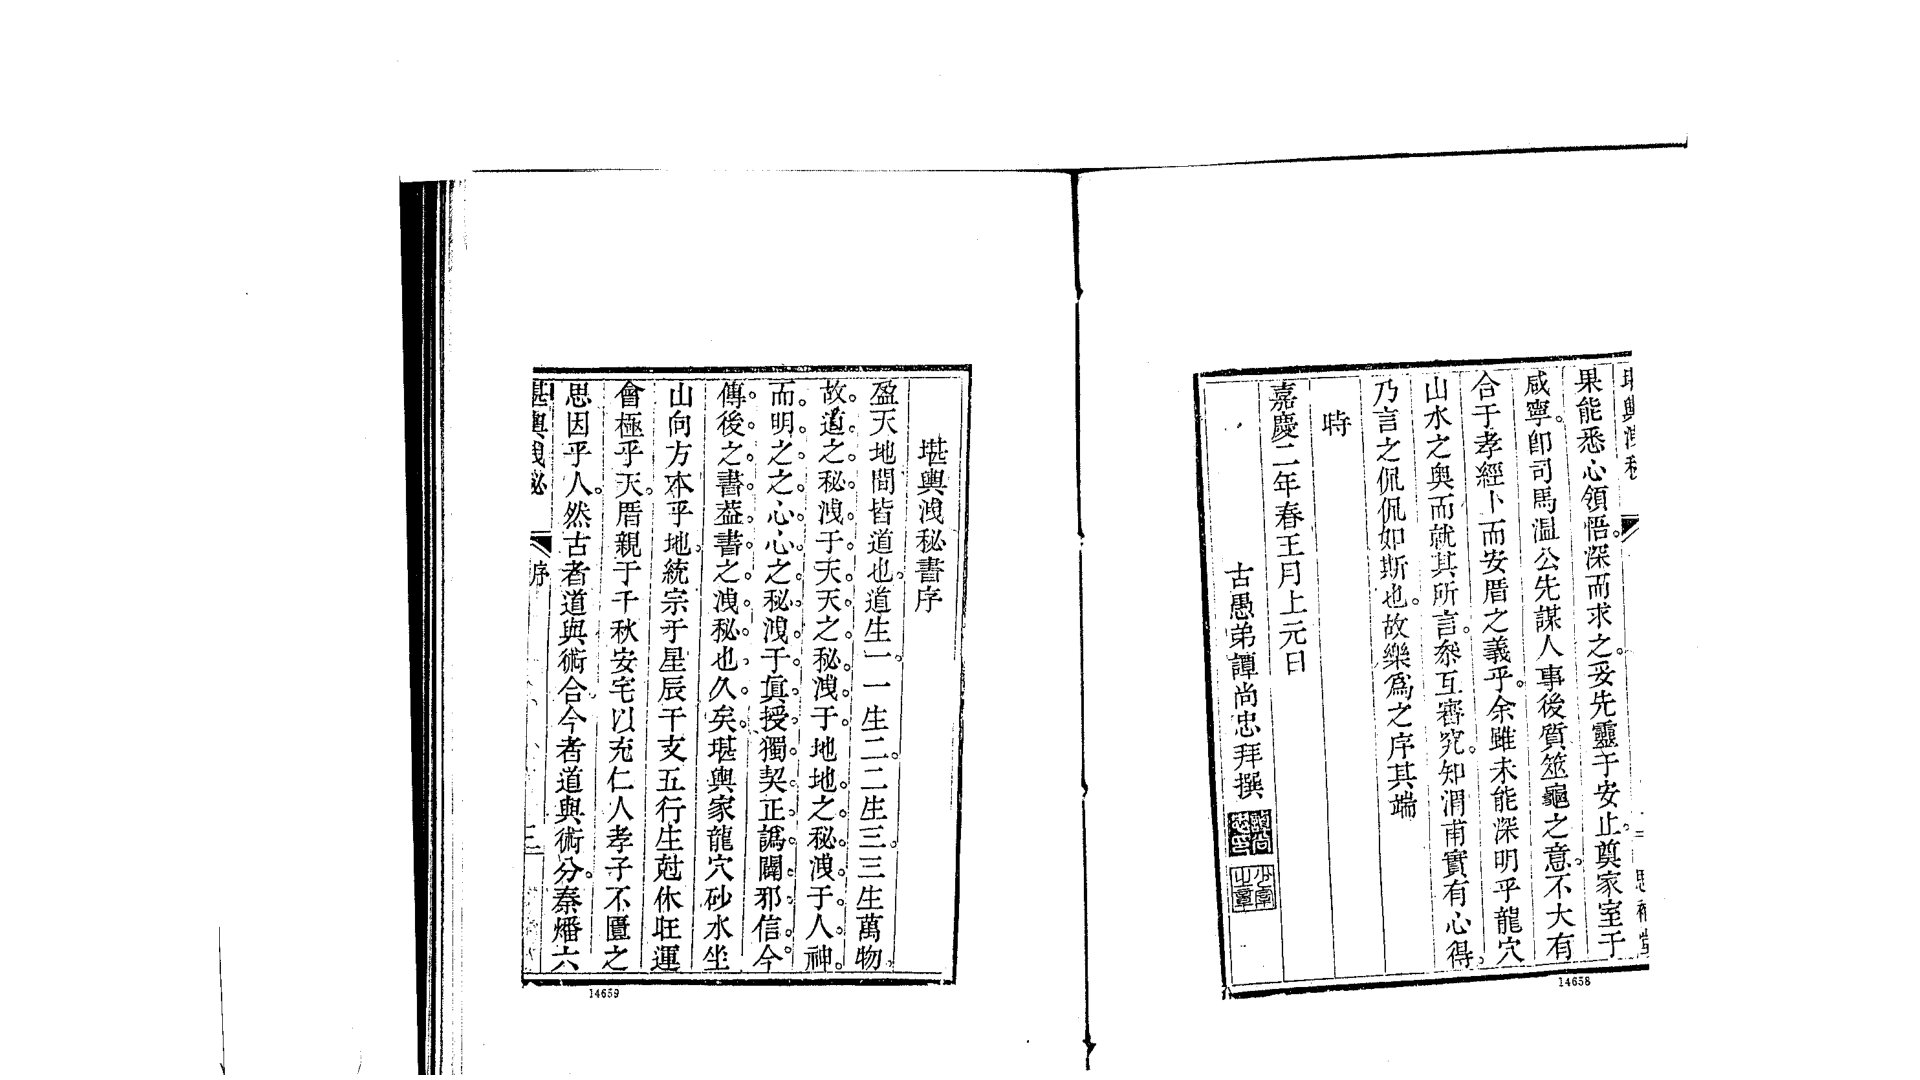 果能悉心領悟。深而求之。妥先靈于安止。奠家室于
咸寧。卽司馬溫公先謀人事後質筮龜之意。不大有
合于孝經卜而安厝之義乎。余雖未能深明乎龍穴
山水之奧而就其所言。叅互審究。知渭甫實有心得。
乃言之侃侃如斯也。故樂爲之序其端
時
嘉慶二年春王月上元日
古愚弟譚尚忠拜撰
14658
堪輿洩秘書序
盈天地間皆道也。道生一。一生二。二生三。三生萬物。
故。道。之。秘。洩。于。天。天。之。秘。洩。于。地。地。之。秘。洩。于。人。神。
而。明。之。之。心。心。之。秘。洩。于。眞。授。獨。契。正。譌。闢。邪。信。今。
傳。後。之。書。葢。書。之。洩。秘。也。久。矣。堪輿家龍穴砂水坐
山向方本乎地。統宗于星辰干支五行生尅休旺運
會極乎天。厝親于千秋安宅以充仁人孝子不匱之
思因乎人。然古者道與術合今者道與術分。秦燔六
堪輿洩秘
序
三
14659